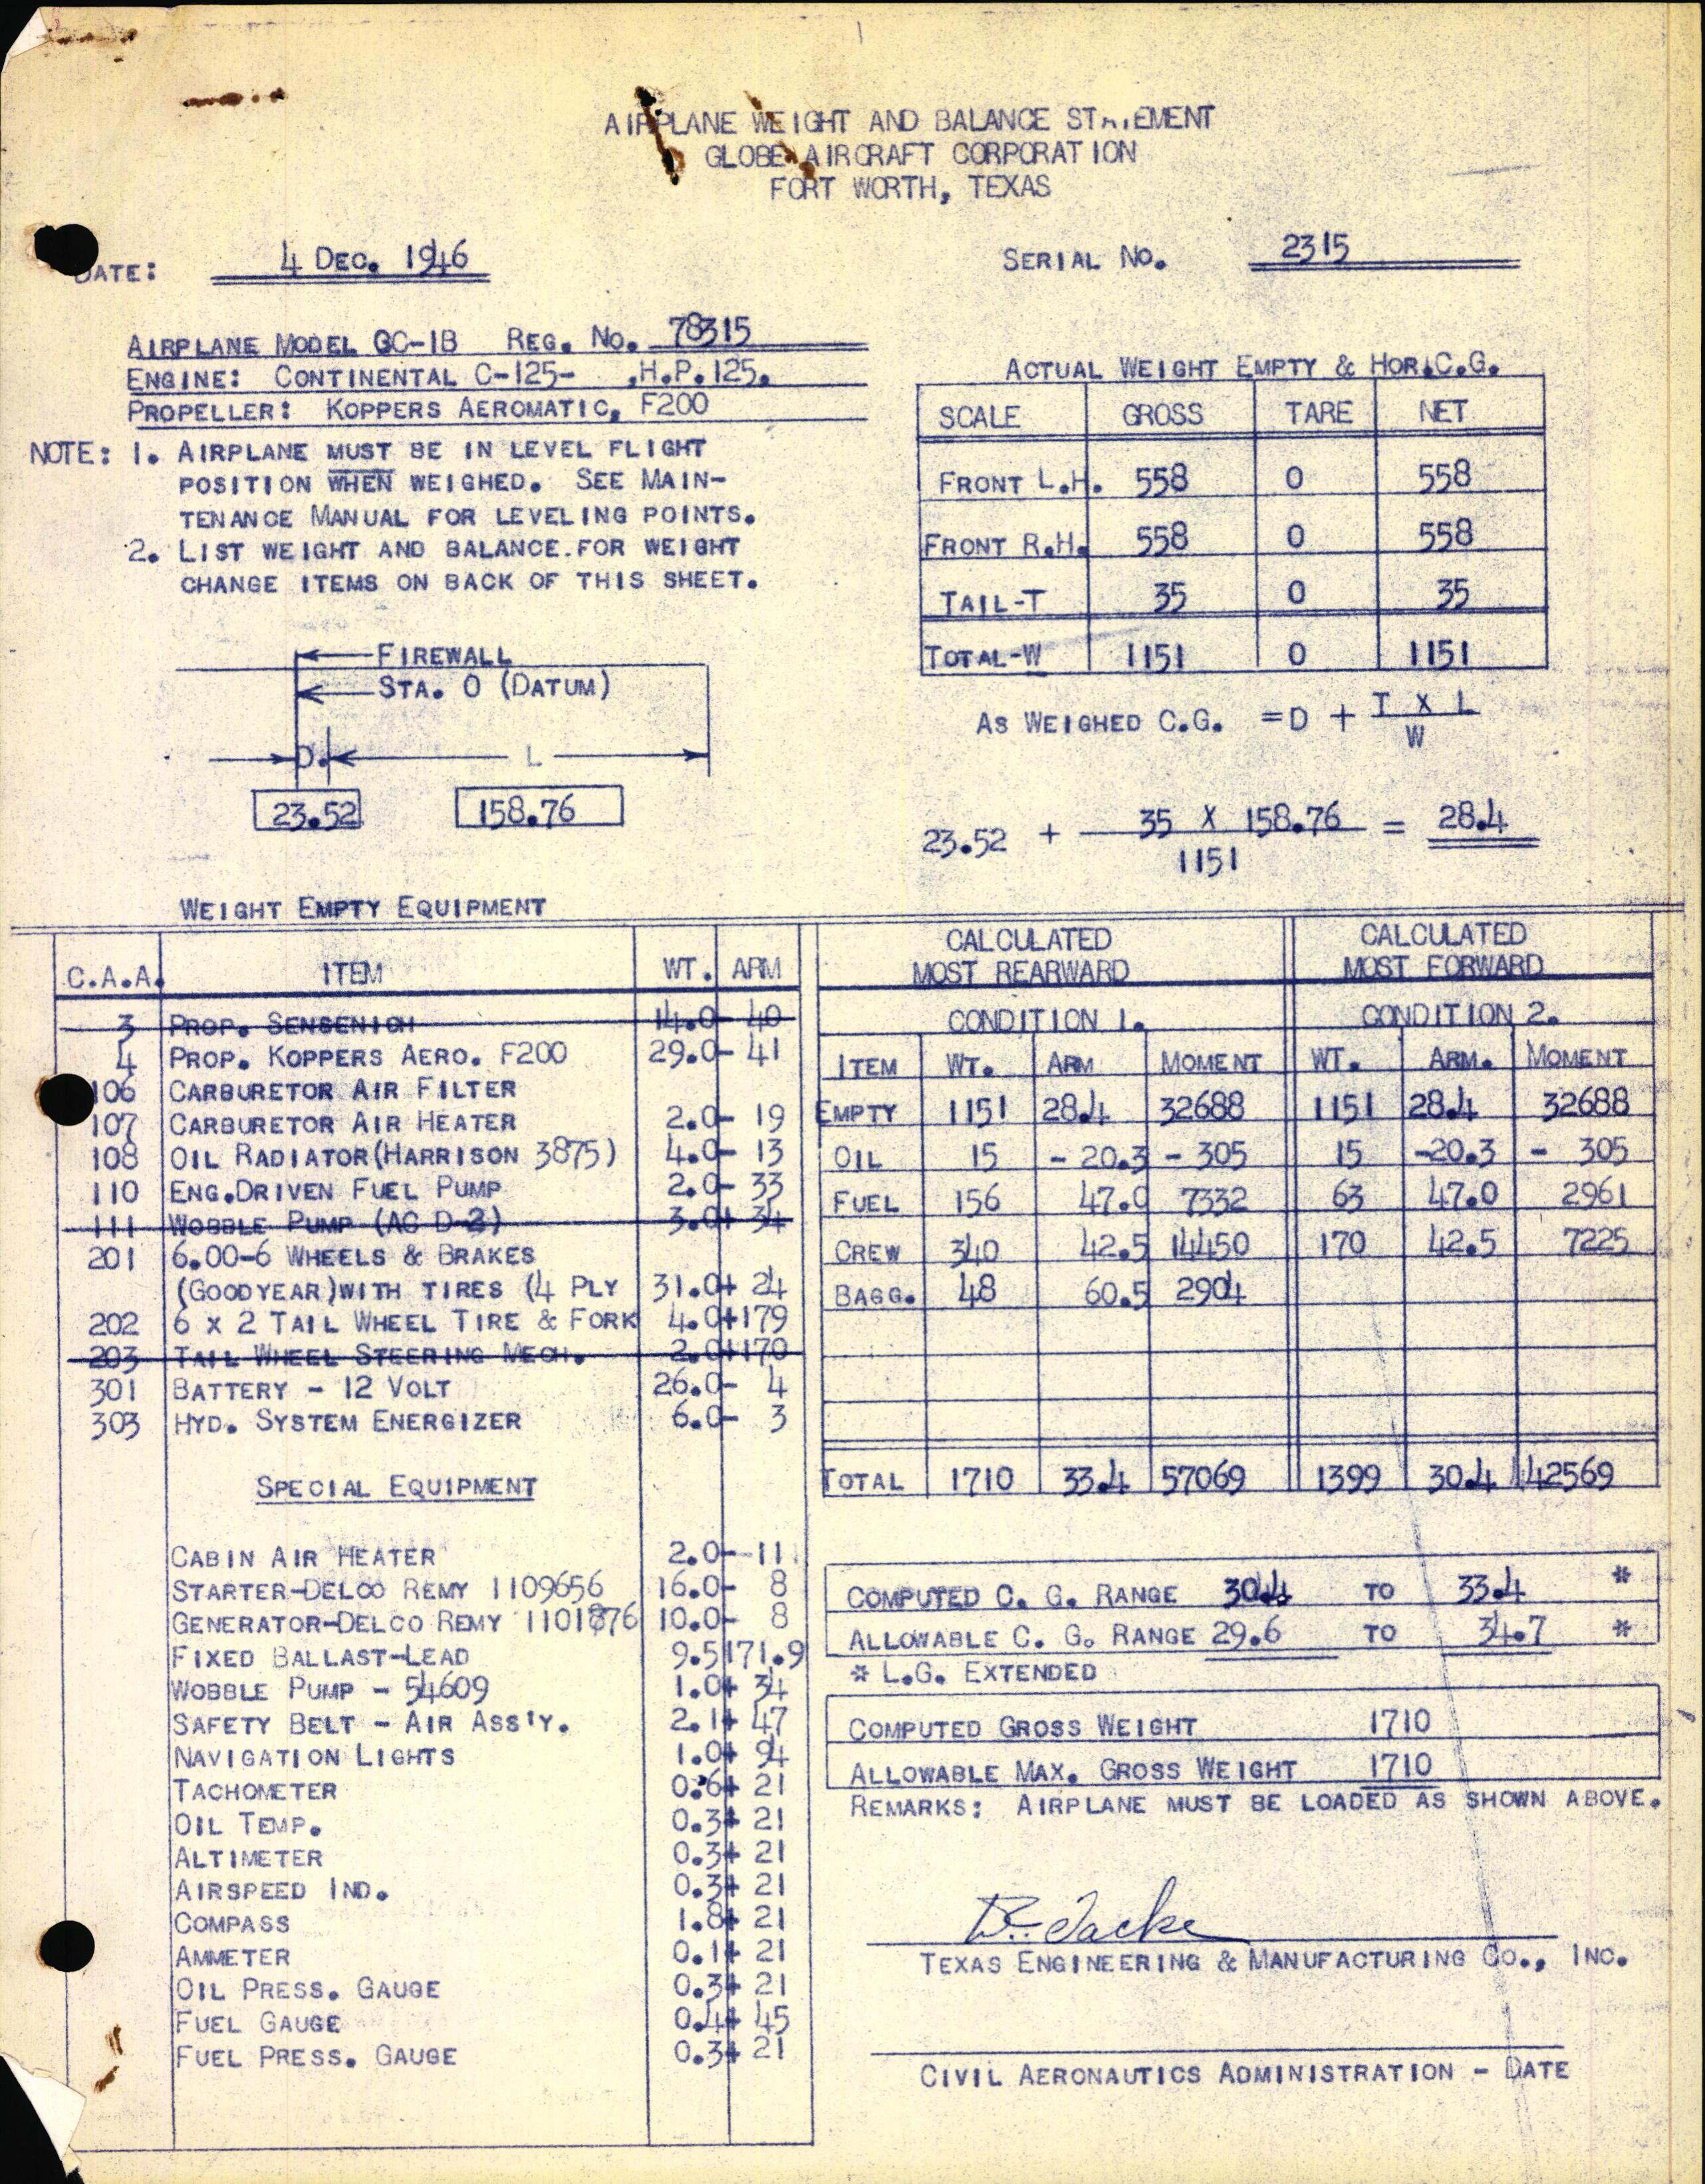 AIRPLANE WEIGHT AND BALANCE STATEMENT
GLOBE AIRCRAFT CORPORATION
FORT WORTH, TEXAS
DATE: 4 DEC. 1946
SERIAL NO. 2315
AIRPLANE MODEL GC-1B REG. NO. 78315
ENGINE: CONTINENTAL C-125- .H.P.125.
PROPELLER: KOPPERS AEROMATIC, F200
NOTE: 1. AIRPLANE MUST BE IN LEVEL FLIGHT
POSITION WHEN WEIGHED. SEE MAIN-
TENANCE MANUAL FOR LEVELING POINTS.
2. LIST WEIGHT AND BALANCE.FOR WEIGHT
CHANGE ITEMS ON BACK OF THIS SHEET.
ACTUAL WEIGHT EMPTY & HOR.C.G.
SCALE GROSS TARE NET
FRONT L.H. 558 0 558
FRONT R.H. 558 0 558
TAIL-T 35 0 35
TOTAL-W 1151 0 1151
FIREWALL
STA. 0 (DATUM)
D. L
23.52 158.76
AS WEIGHED C.G. =D + T X L
W
23.52 + 35 X 158.76 = 28.4
1151
WEIGHT EMPTY EQUIPMENT
C.A.A. ITEM WT. ARM
3 PROP. SENSENICH 14.0- 40
4 PROP. KOPPERS AERO. F200 29.0- 41
106 CARBURETOR AIR FILTER
107 CARBURETOR AIR HEATER 2.0- 19
108 OIL RADIATOR(HARRISON 3875) 4.0- 13
110 ENG.DRIVEN FUEL PUMP 2.0- 33
111 WOBBLE PUMP (AC D-2) 3.0+ 34
201 6.00-6 WHEELS & BRAKES
(GOODYEAR)WITH TIRES (4 PLY 31.0+ 24
202 6 X 2 TAIL WHEEL TIRE & FORK 4.0+179
203 TAIL WHEEL STEERING MECH. 2.0+170
301 BATTERY - 12 VOLT 26.0- 4
303 HYD. SYSTEM ENERGIZER 6.0- 3
SPECIAL EQUIPMENT
CABIN AIR HEATER 2.0- 11
STARTER-DELCO REMY 1109656 16.0- 8
GENERATOR-DELCO REMY 1101876 10.0- 8
FIXED BALLAST-LEAD 9.5 171.9
WOBBLE PUMP - 54609 1.0+ 34
SAFETY BELT - AIR ASS'Y. 2.1+ 47
NAVIGATION LIGHTS 1.0+ 94
TACHOMETER 0.6+ 21
OIL TEMP. 0.3+ 21
ALTIMETER 0.3+ 21
AIRSPEED IND. 0.3+ 21
COMPASS 1.8+ 21
AMMETER 0.1+ 21
OIL PRESS. GAUGE 0.3+ 21
FUEL GAUGE 0.4+ 45
FUEL PRESS. GAUGE 0.3+ 21
CALCULATED CALCULATED
MOST REARWARD MOST FORWARD
CONDITION 1. CONDITION 2.
ITEM WT. ARM MOMENT WT. ARM. MOMENT
EMPTY 1151 28.4 32688 1151 28.4 32688
OIL 15 - 20.3 - 305 15 -20.3 - 305
FUEL 156 47.0 7332 63 47.0 2961
CREW 340 42.5 14450 170 42.5 7225
BAGG. 48 60.5 2904
TOTAL 1710 33.4 57069 1399 30.4 42569
COMPUTED C. G. RANGE 30.4 TO 33.4 *
ALLOWABLE C. G. RANGE 29.6 TO 34.7 *
* L.G. EXTENDED
COMPUTED GROSS WEIGHT 1710
ALLOWABLE MAX. GROSS WEIGHT 1710
REMARKS: AIRPLANE MUST BE LOADED AS SHOWN ABOVE.
TEXAS ENGINEERING & MANUFACTURING CO., INC.
CIVIL AERONAUTICS ADMINISTRATION - DATE